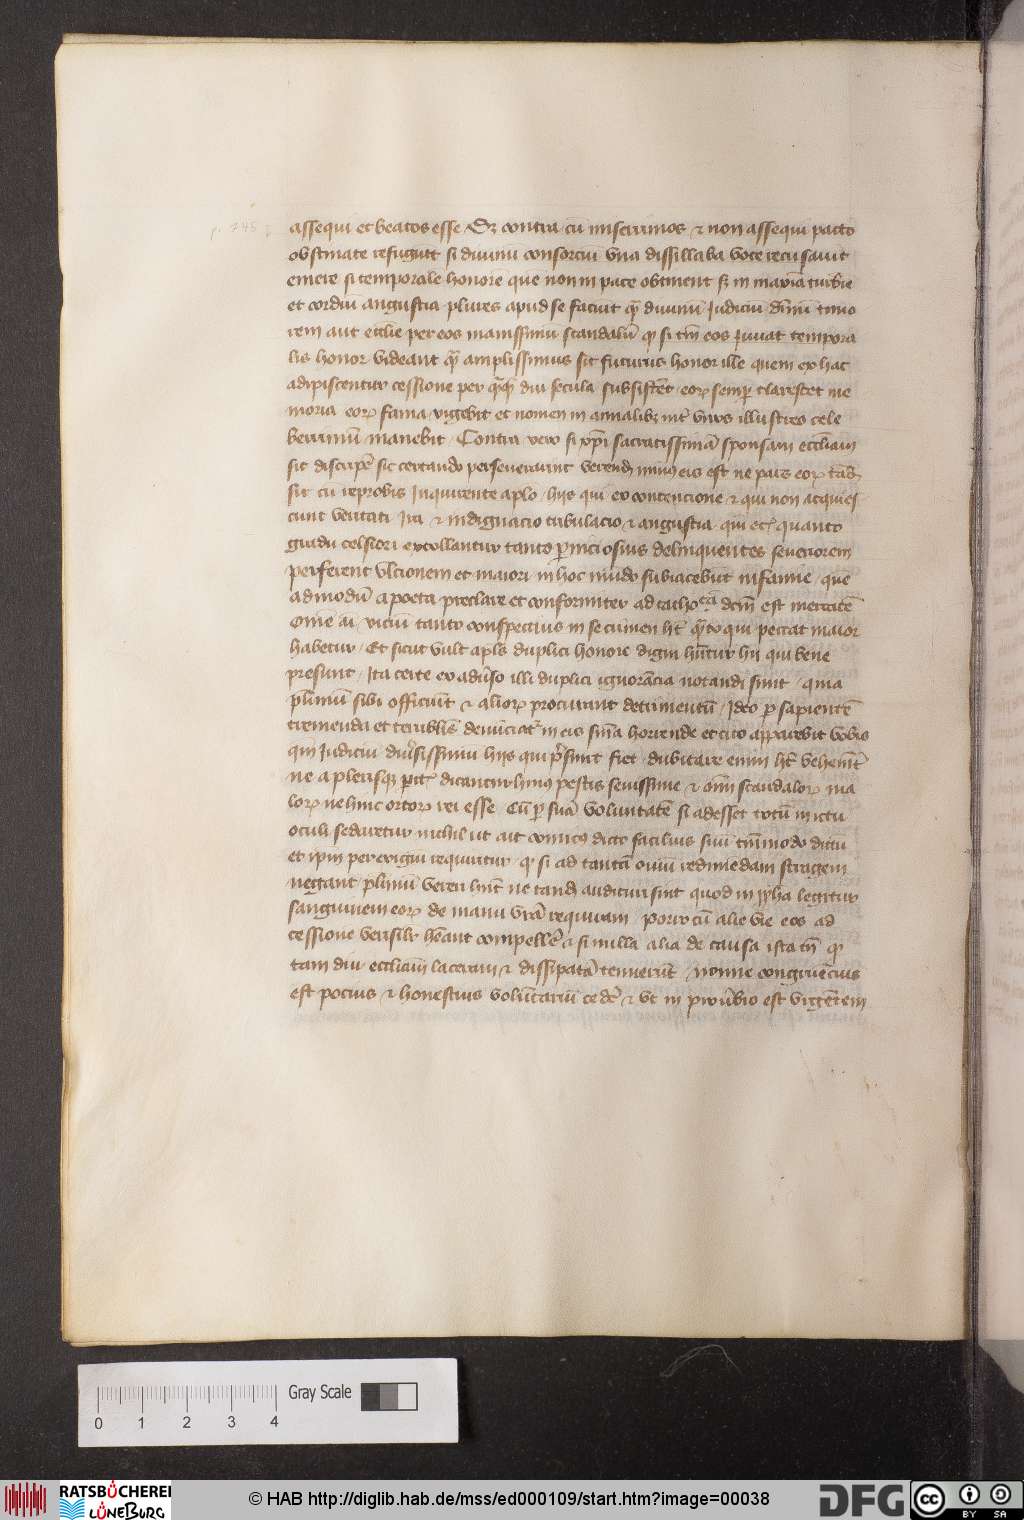 assequi et beatos esse Qr contra cu miserrimos et non assequi pacto
obstinate refugiut si diuinu consorciu vna dissillaba voce recusauit
emere si temporale honore que non in pace obtinent sz in maxia turbie
et cordiu angustia plures apud se faciut q diuinu Judiciu diuinu timo
rem aut ecclie per eos manissimu scandalu qz si tm eos Juuat tempora
lis honor videant q amplissimus sit futurus honor ille quem ex hac
adipiscentur cessione per q diu secula subsistet eorz semp clarescet me
moria eorz fama vigebit et nomen in annalibz int viros illustres cele
berrimu manebit Contra vero si xpi sacratissima sponsam eccliam
sic discerpe sic certando perseuerauint verend nimis eis est ne pars eorz
sit cu reprobis Inquirente aplo hijs qui ex contencione et qui non acquies
cunt veritati Ira et indignacio tribulacio et angustia qui etc quanto
gradu celsiori extollantur tanto pniciosius delinquentes seueriorem
perferent vlcionem et maiori in hoc mudo subiacebut infamie que
admodu a poeta preclare et conformiter ad catholica dcm est
Omne ai viciu tanto conspectius in se crimen ht qto qui peccat maior
habetur Et sicut vult apls duplici honore digni hntur hij qui bene
presunt Ita certe ex aduso illi duplici ignorancia notandi sunt quia
plimu sibi officiut et aliorz procurant detrimentu Ideo p sapiente
tremenda et terriblis denuciat in eis sma horrende et cito apparebit vobis
qm Judiciu durissimu hijs qui psunt fiet dubitare enim ht vehement
ne a plerisqz dicantur huius pestis seuissime et oim scandalorz ma
lorz ne hinc ortorz rei esse Cu p sua voluntate si adesset totu in ictu
oculi sedaretur nichil ut ait comicus dicto facilius siui tmmodo dictu
et ipm perexigui requiritur qz si ad tanta ouiu redimedam stragem
negant plimu vereri hnt ne tandz audituri sint quod in legitur
sanguinem eorz de manu vra requiram porro cu alie vie eos ad
cessione verisilr heant compelle a si nulla alia de causa ista tn qz
tam diu eccliam laceram et dissipata tenuerut nonne congruecius
est pocius et honestius voluntariu cede et vt in prouerbio est vrgetem
Gray Scale
0 1 2 3 4
RATSBÜCHEREI
LÜNEBURG
© HAB http://diglib.hab.de/mss/ed000109/start.htm?image=00038
DFG
cc BY SA